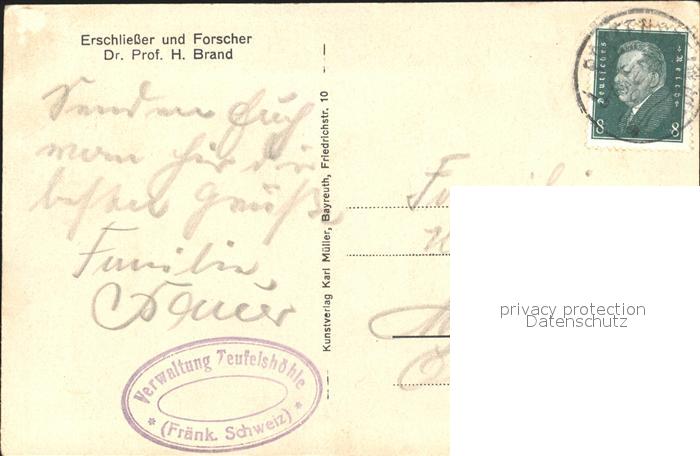 Erschließer und Forscher
Dr. Prof. H. Brand
Senden Euch
von hier die
besten Grüße
Familie
Kunstverlag Karl Müller, Bayreuth, Friedrichstr. 10
Verwaltung Teufelshöhle
* (Fränk. Schweiz) *
Deutsches Reich
8 8
privacy protection
Datenschutz